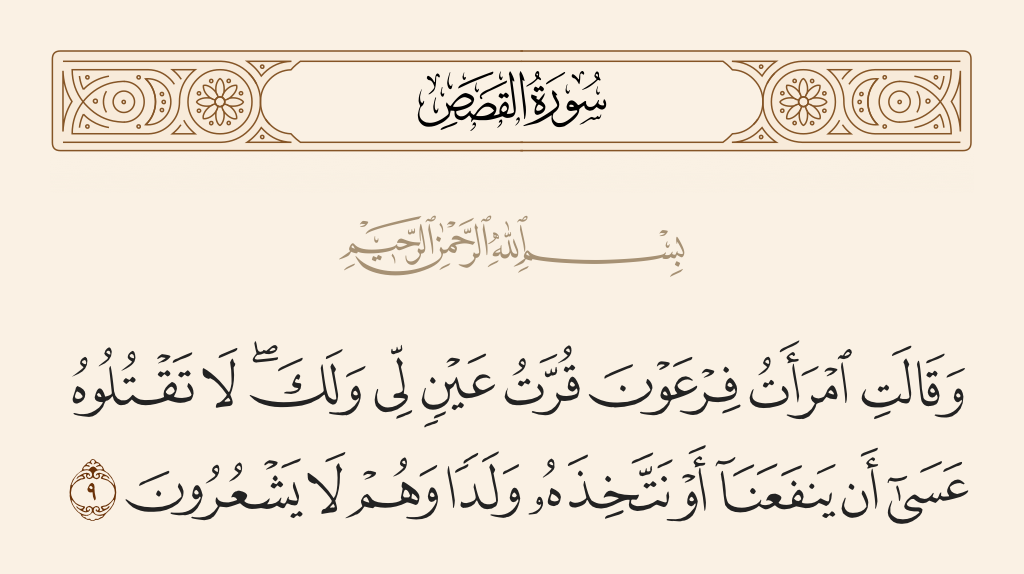 سُورَةُ القَصَصِ
بِسْمِ ٱللَّهِ ٱلرَّحْمَٰنِ ٱلرَّحِيمِ
وَقَالَتِ ٱمْرَأَتُ فِرْعَوْنَ قُرَّتُ عَيْنٍ لِّى وَلَكَ ۖ لَا تَقْتُلُوهُ
عَسَىٰٓ أَن يَنفَعَنَآ أَوْ نَتَّخِذَهُۥ وَلَدًا وَهُمْ لَا يَشْعُرُونَ ٩